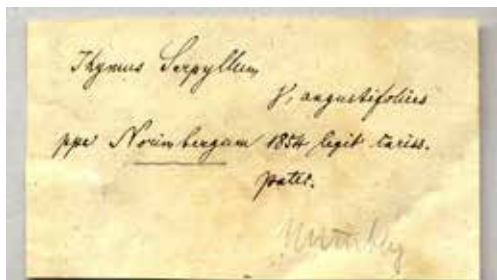 Thymus Serpyllum
γ, angustifolius
ppe Norimbergam 1854 legit cariss.
pater.